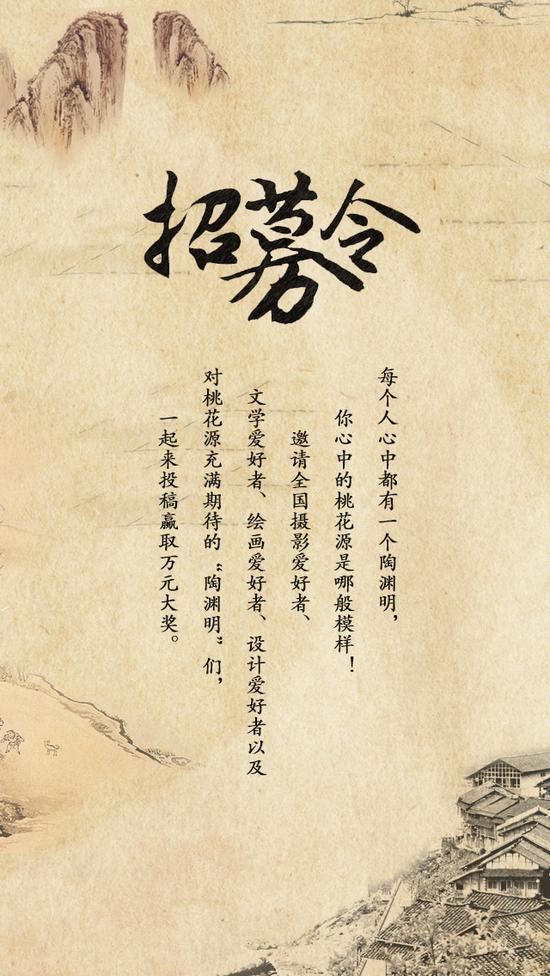 招募令
每个人心中都有一个陶渊明，
你心中的桃花源是哪般模样！
邀请全国摄影爱好者、
文学爱好者、绘画爱好者、设计爱好者以及
对桃花源充满期待的“陶渊明”们，
一起来投稿赢取万元大奖。